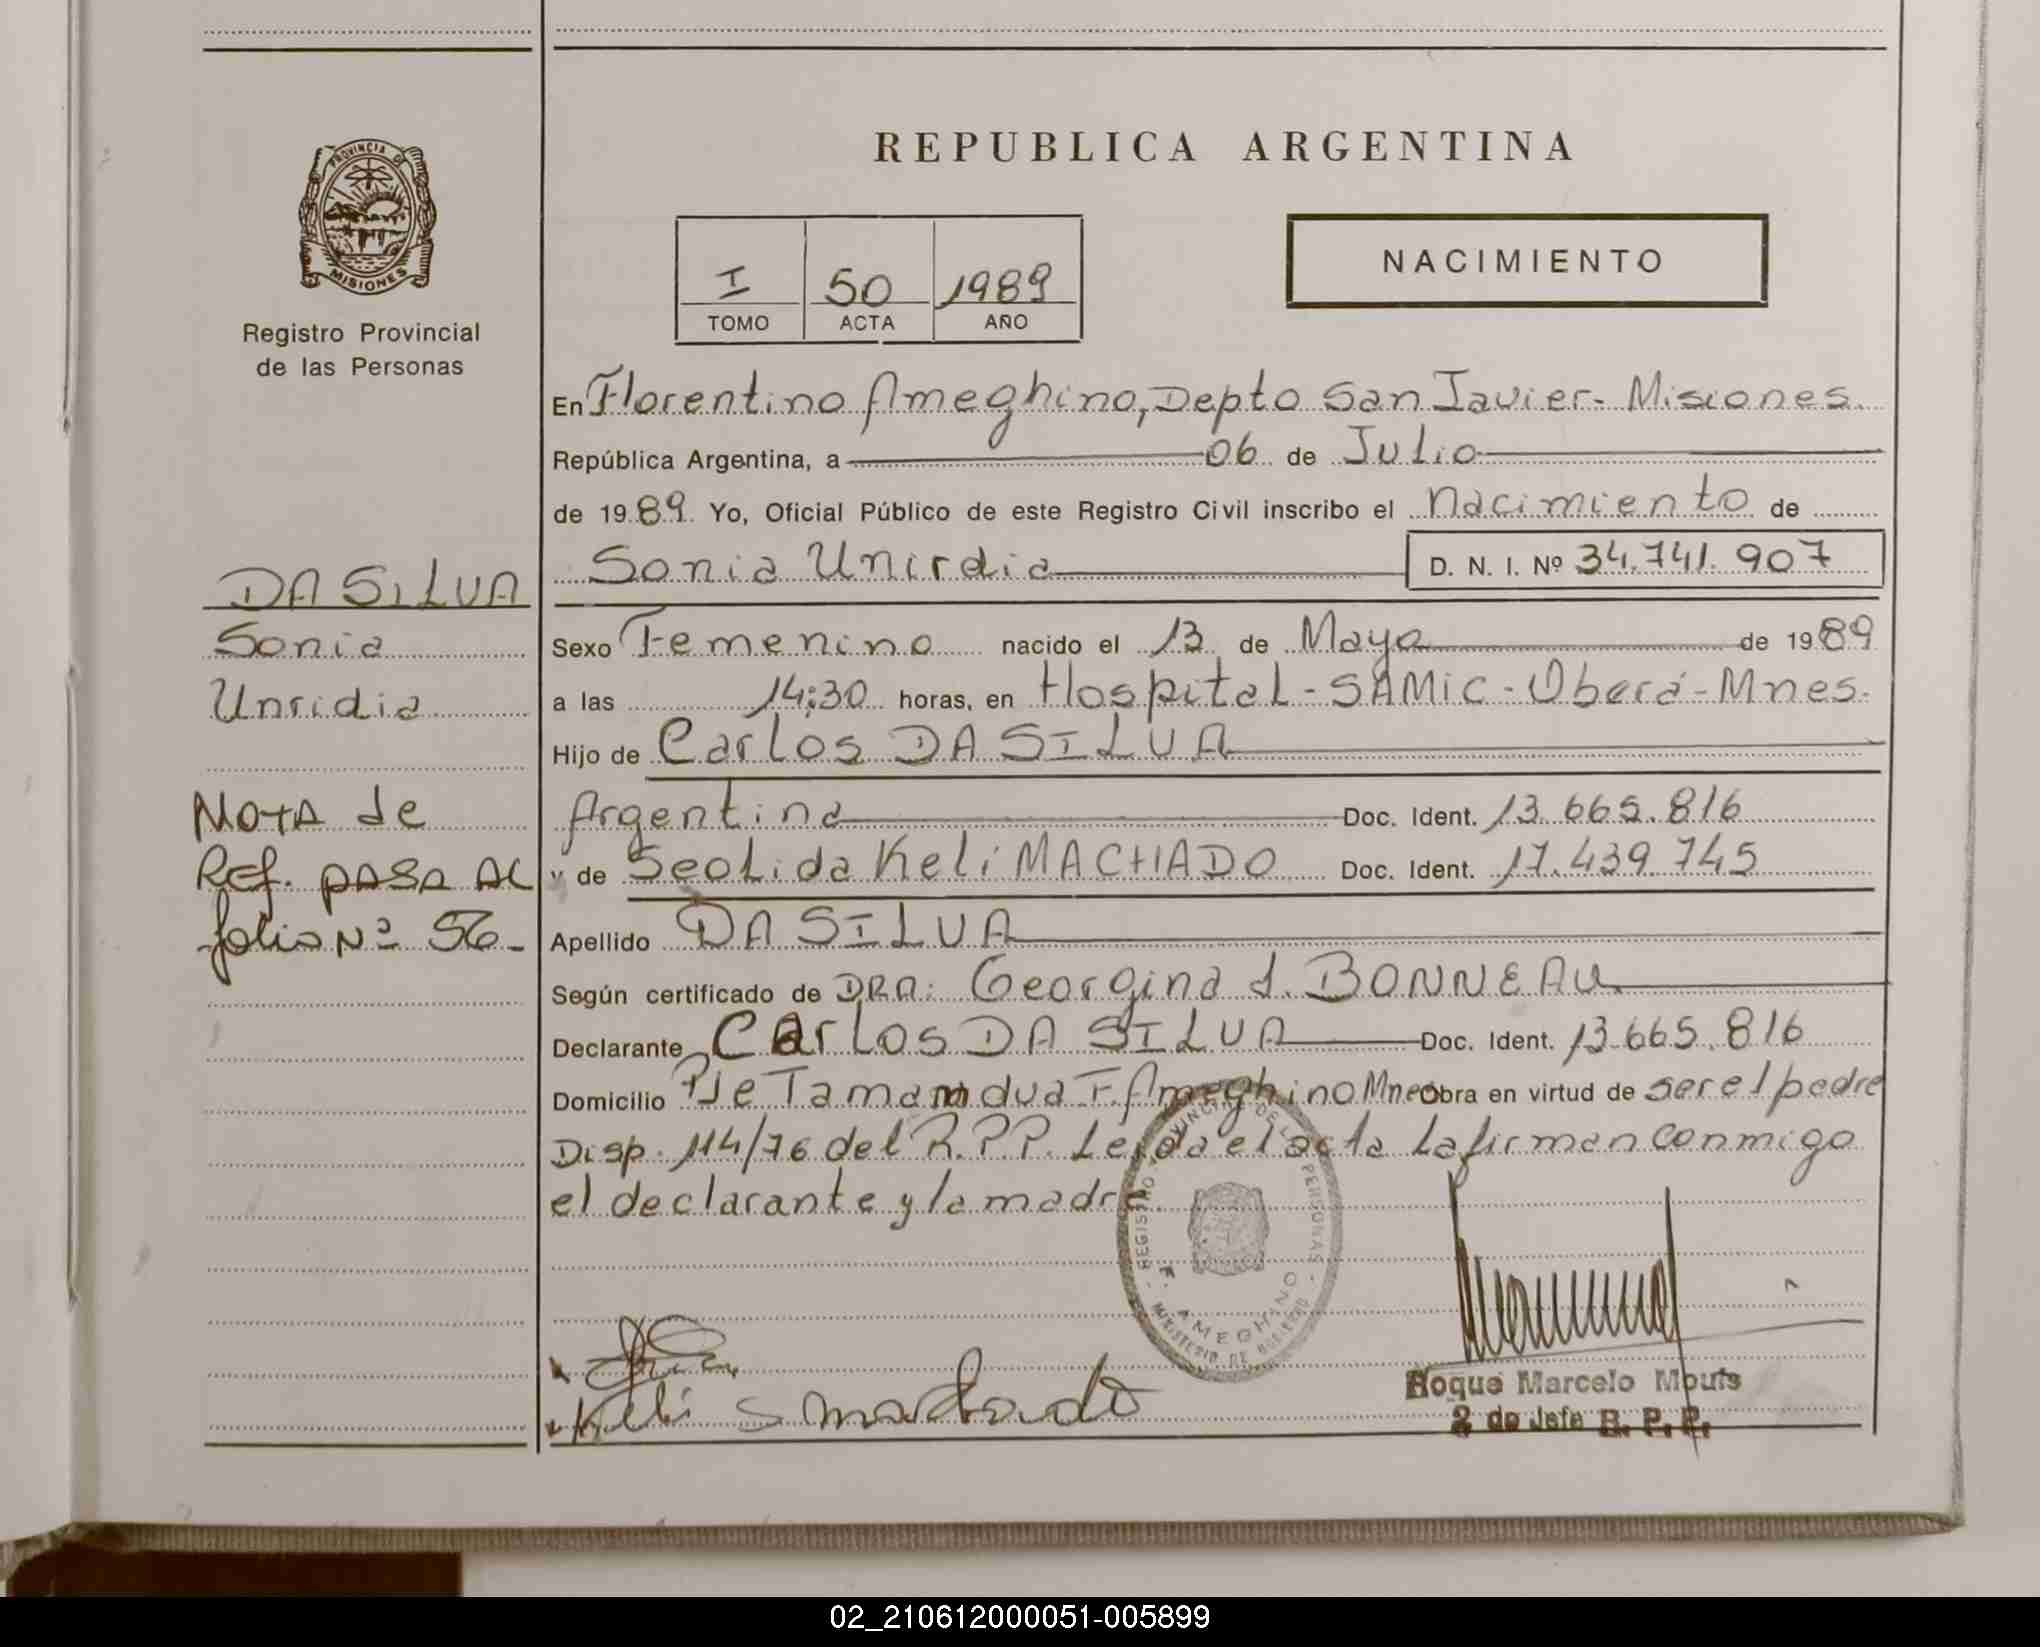 PROVINCIA DE
MISIONES
Registro Provincial
de las Personas
DA SILVA
Sonia
Unridia
NOTA de
Ref. PASA AL
folio Nº 56-
REPUBLICA ARGENTINA
I 50 1989
TOMO ACTA AÑO
NACIMIENTO
En Florentino Ameghino, Depto San Javier- Misiones.
República Argentina, a 06 de Julio
de 1989 Yo, Oficial Público de este Registro Civil inscribo el nacimiento de
Sonia Unirdia D. N. I. Nº 34.741.907
Sexo Femenino nacido el 13 de Mayo de 1989
a las 14:30 horas, en Hospital - SAMIC - Oberá - Mnes.
Hijo de Carlos DA SILVA
Argentina Doc. Ident. 13.665.816
y de Seolida Keli MACHADO Doc. Ident. 17.439.745
Apellido DA SILVA
Según certificado de DRA: Georgina I. BONNEAU
Declarante Carlos DA SILVA Doc. Ident. 13.665.816
Domicilio Pje Tamandua F. Ameghino Mnes obra en virtud de ser el padre
Disp. 114/76 del R.P.P. Leida el acta la firman conmigo
el declarante y la madre.
REGISTRO PROVINCIAL DE LAS PERSONAS
F. AMEGHINO
MINISTERIO DE GOBIERNO
Keli S machado
Roque Marcelo Mouts
2 do Jefe R. P. P.
02_210612000051-005899